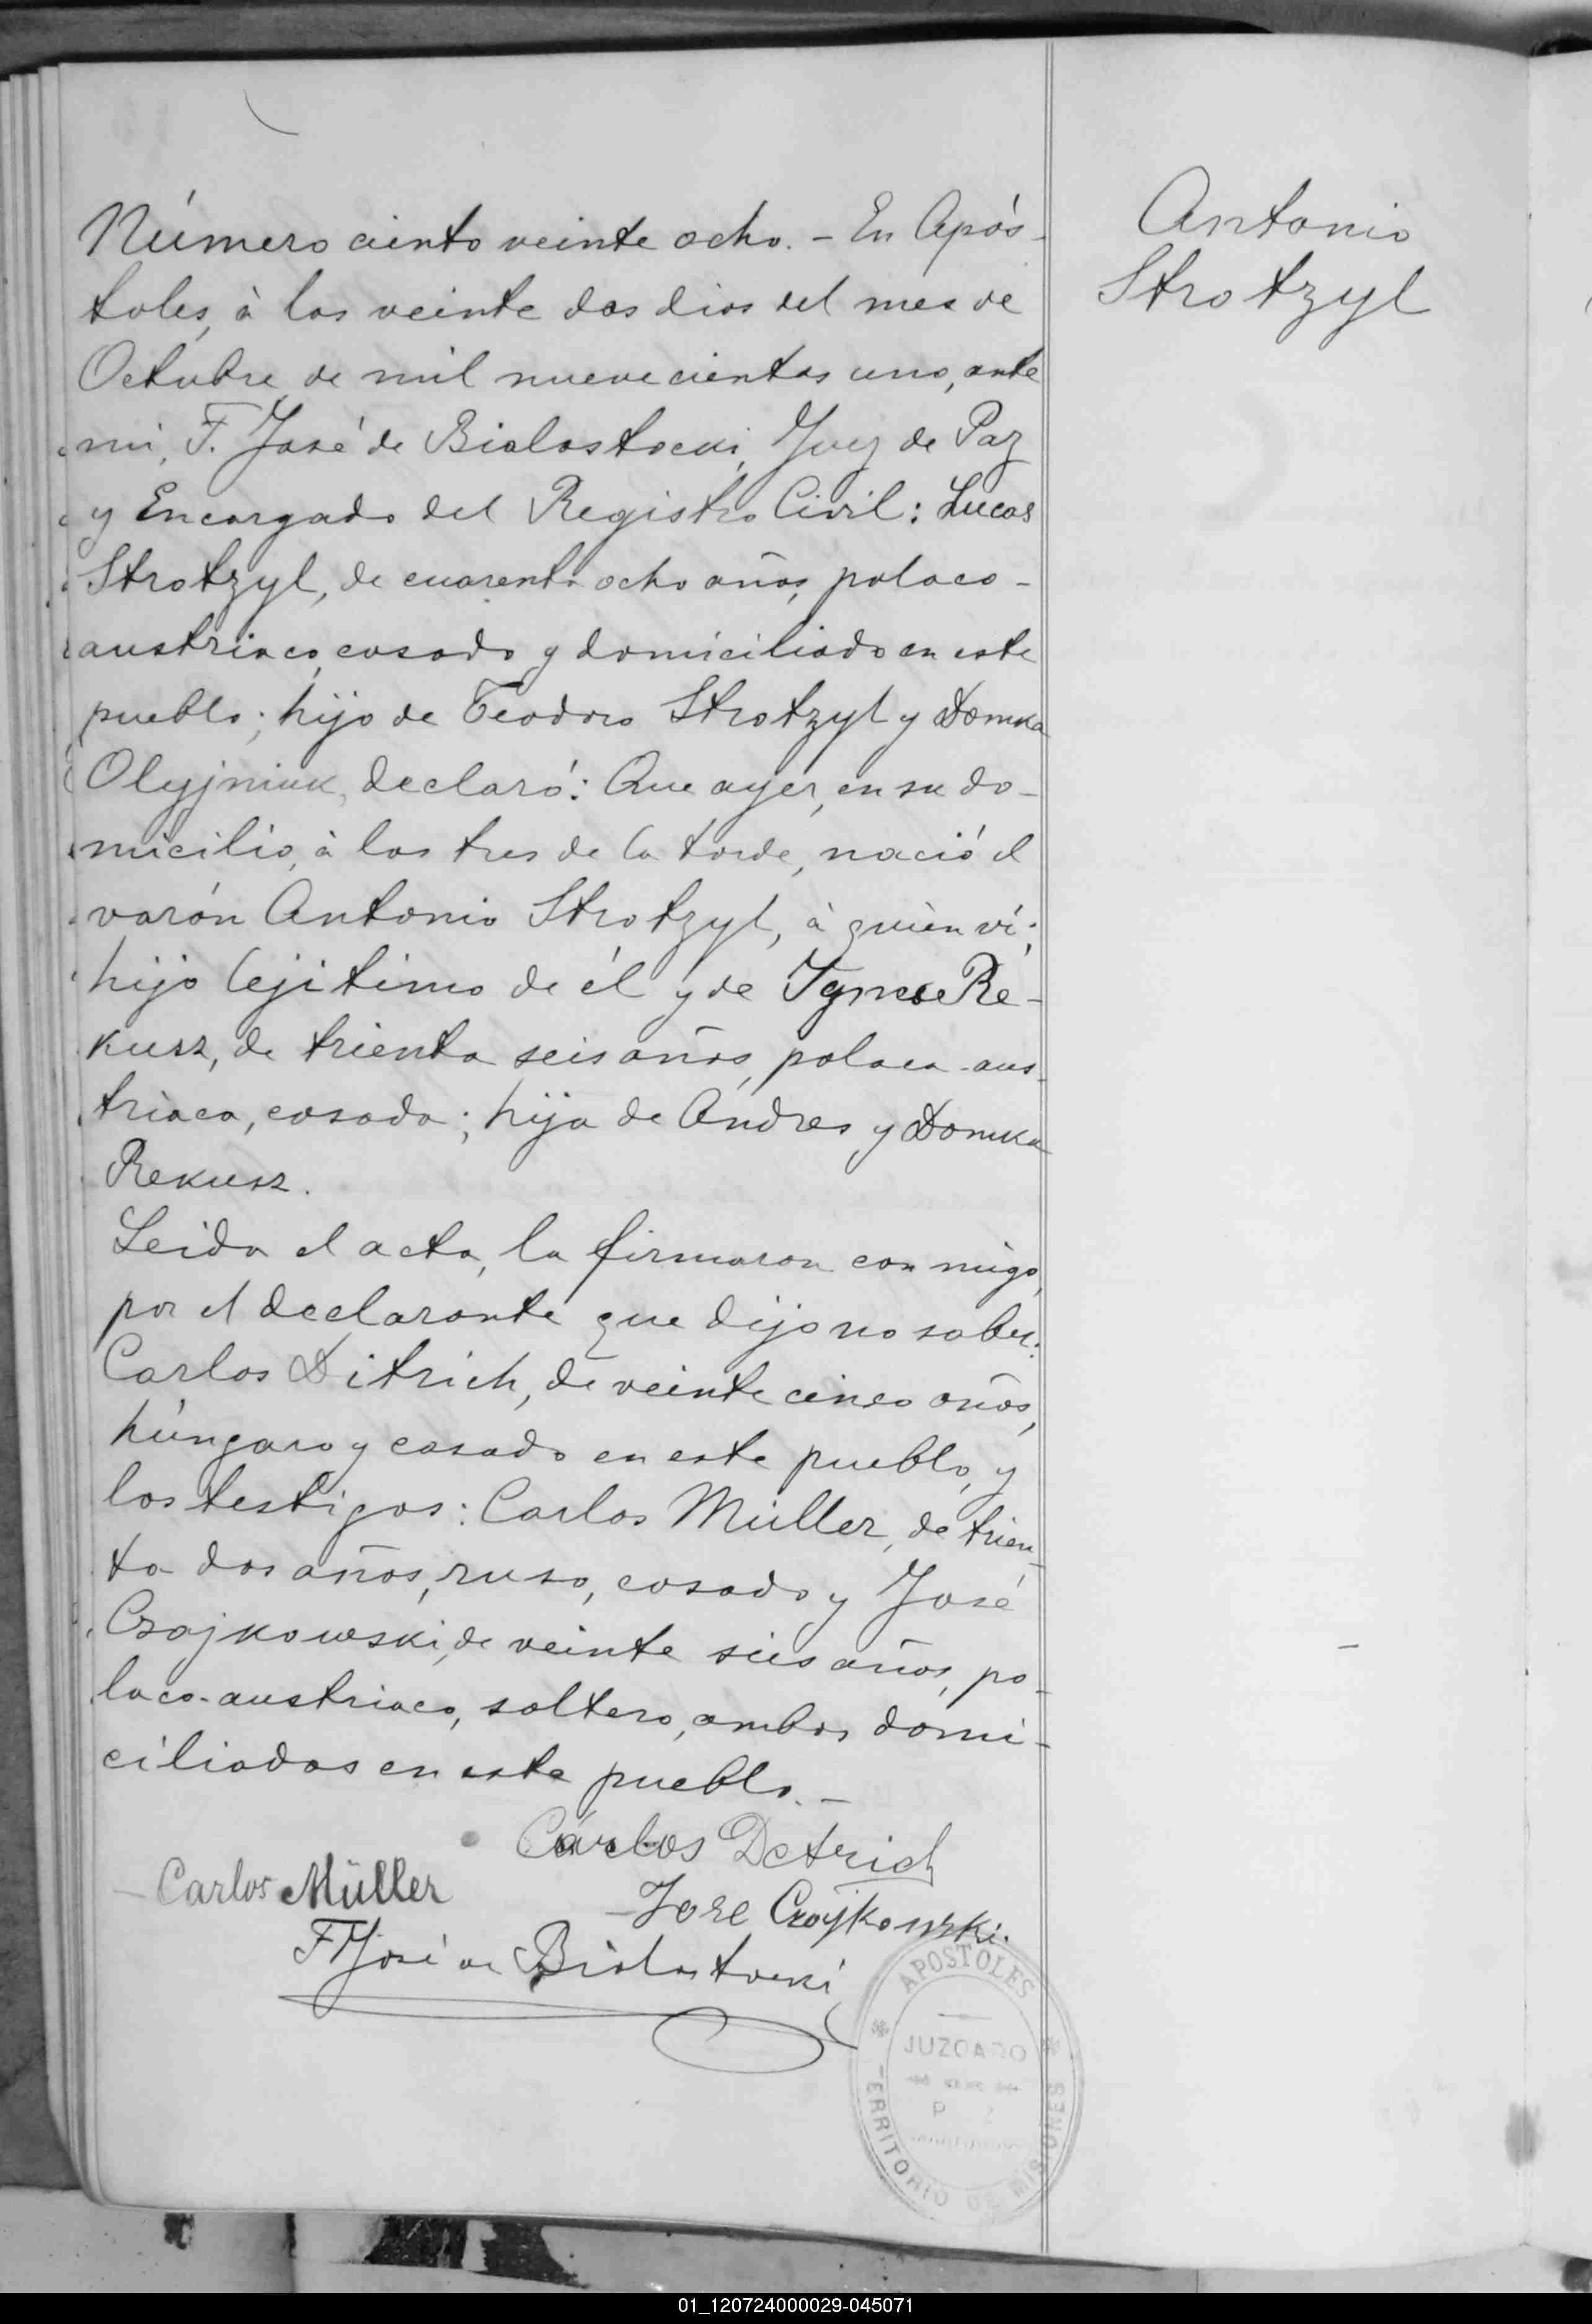 Número ciento veinte ocho. – En Após-
toles, à los veinte dos dias del mes de
Octubre de mil nuevecientos uno, ante
mi, F. José de Bialostocki, Juez de Paz
y Encargado del Registro Civil: Lucas
Strotzyl, de cuarenta ocho años, polaco-
austriaco, casado y domiciliado en este
pueblo; hijo de Teodoro Strotzyl y Domka
Olyjniuk, declaró: Que ayer, en su do-
micilio, à las tres de la tarde, nació el
varón Antonio Strotzyl, à quien ví;
hijo lejitimo de él y de Re-
kusz, de trienta seis años, polaca-aus-
triaca, casada; hija de Andres y Domka
Rekusz.
Leida el acta, la firmaron con migo,
por el declarante que dijo no saber:
Carlos Ditrich, de veinte cinco años,
húngaro y casado en este pueblo, y
los testigos: Carlos Müller, de trien-
ta dos años, ruso, casado y José
Czajkowski, de veinte seis años, po-
laco-austriaco, soltero, ambos domi-
ciliados en este pueblo. –
Carlos Detrich
Carlos Müller
Jose Czajkowski.
F José de Bialostocki
Antonio
Strotzyl
APOSTOLES
JUZGADO
TERRITORIO DE MISIONES
01_120724000029-045071